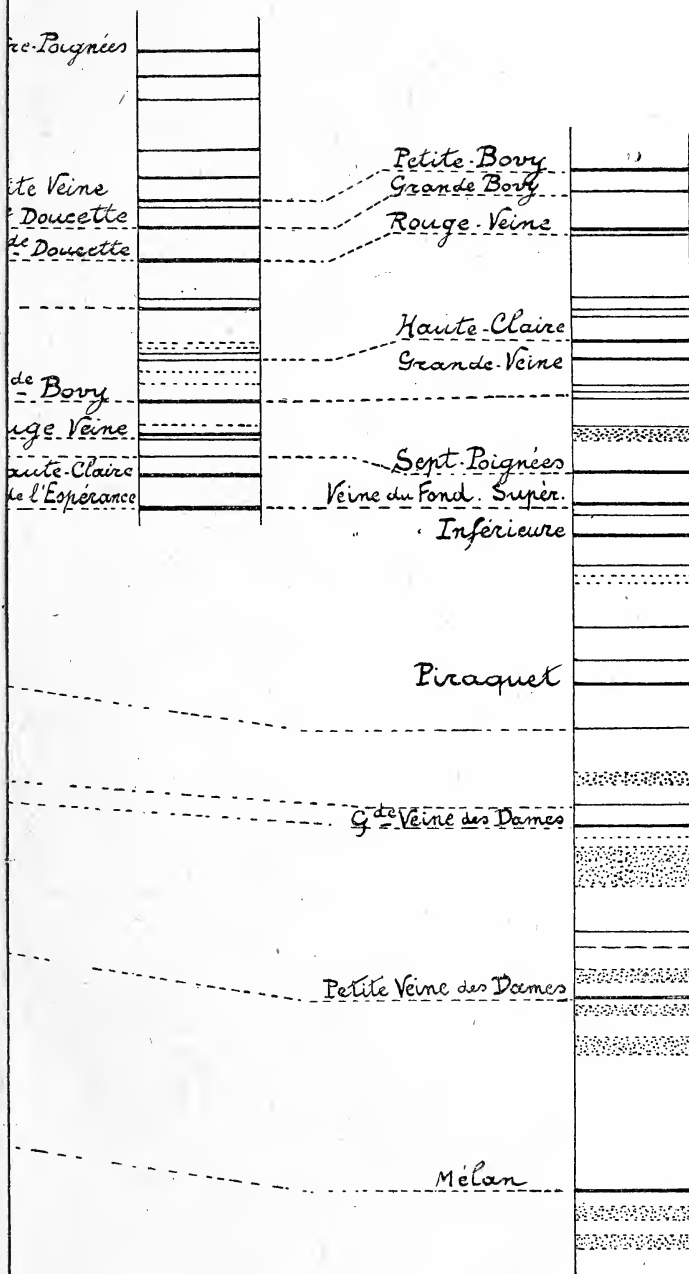 re-Poignées
te Veine
Doucette
de Doucette
de Bovy
uge Veine
aute-Claire
de l'Espérance
Petite-Bovy
Grande Bovy
Rouge-Veine
Haute-Claire
Grande-Veine
Sept-Poignées
Veine du Fond. Supèr.
" Inférieure
Piraquet
Gde Veine des Dames
Petite Veine des Dames
Mélan